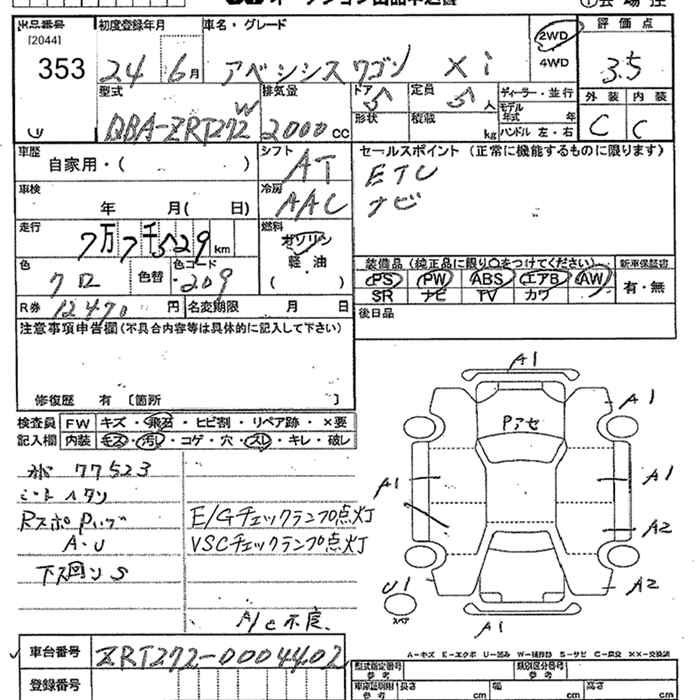 オークション出品申込書
出品番号 初度登録年月 車名・グレード 2WD 評価点
[2044] 4WD
353 24 6月 アベンシスワゴン Xi 3.5
型式 排気量 ドア 5 定員 5人 ディーラー・並行 外装 内装
形状 積載 kg モデル年式 年
QBA-ZRT272W 2000cc ハンドル 左・右 C C
車歴 シフト セールスポイント(正常に機能するものに限ります)
自家用・( ) AT ETC
車検 冷房 ナビ
年 月( 日) AAC
走行 燃料
7万7千529km ガソリン
軽・油
( )
色 色替 色コード 装備品(純正品に限り○をつけてください) 新車保証書
クロ 209 PS PW ABS エアB AW 有・無
SR ナビ TV カワ
R券 12470円 名変期限 月 日 後日品
注意事項申告欄(不具合内容等は具体的に記入して下さい)
修復歴 有 〔箇所 〕
検査員 FW キズ・飛石・ヒビ割・リペア跡・×要
記入欄 内装 キズ・汚れ・コゲ・穴・スレ・キレ・破レ
77523
E/Gチェックランプ点灯
A・U VSCチェックランプ点灯
下回りS
A/C不良
A1
A1
Pアセ
A1 A1
A2
U1 A2
スペア
A1
A-キズ E-エクボ U-凹み W-補修跡 S-サビ C-腐食 ××-交換済
車台番号 ZRT272-0004402
登録番号
型式指定番号 参考 類別区分番号 参考
車庫証明用 参考 長さ cm 幅 cm 高さ cm